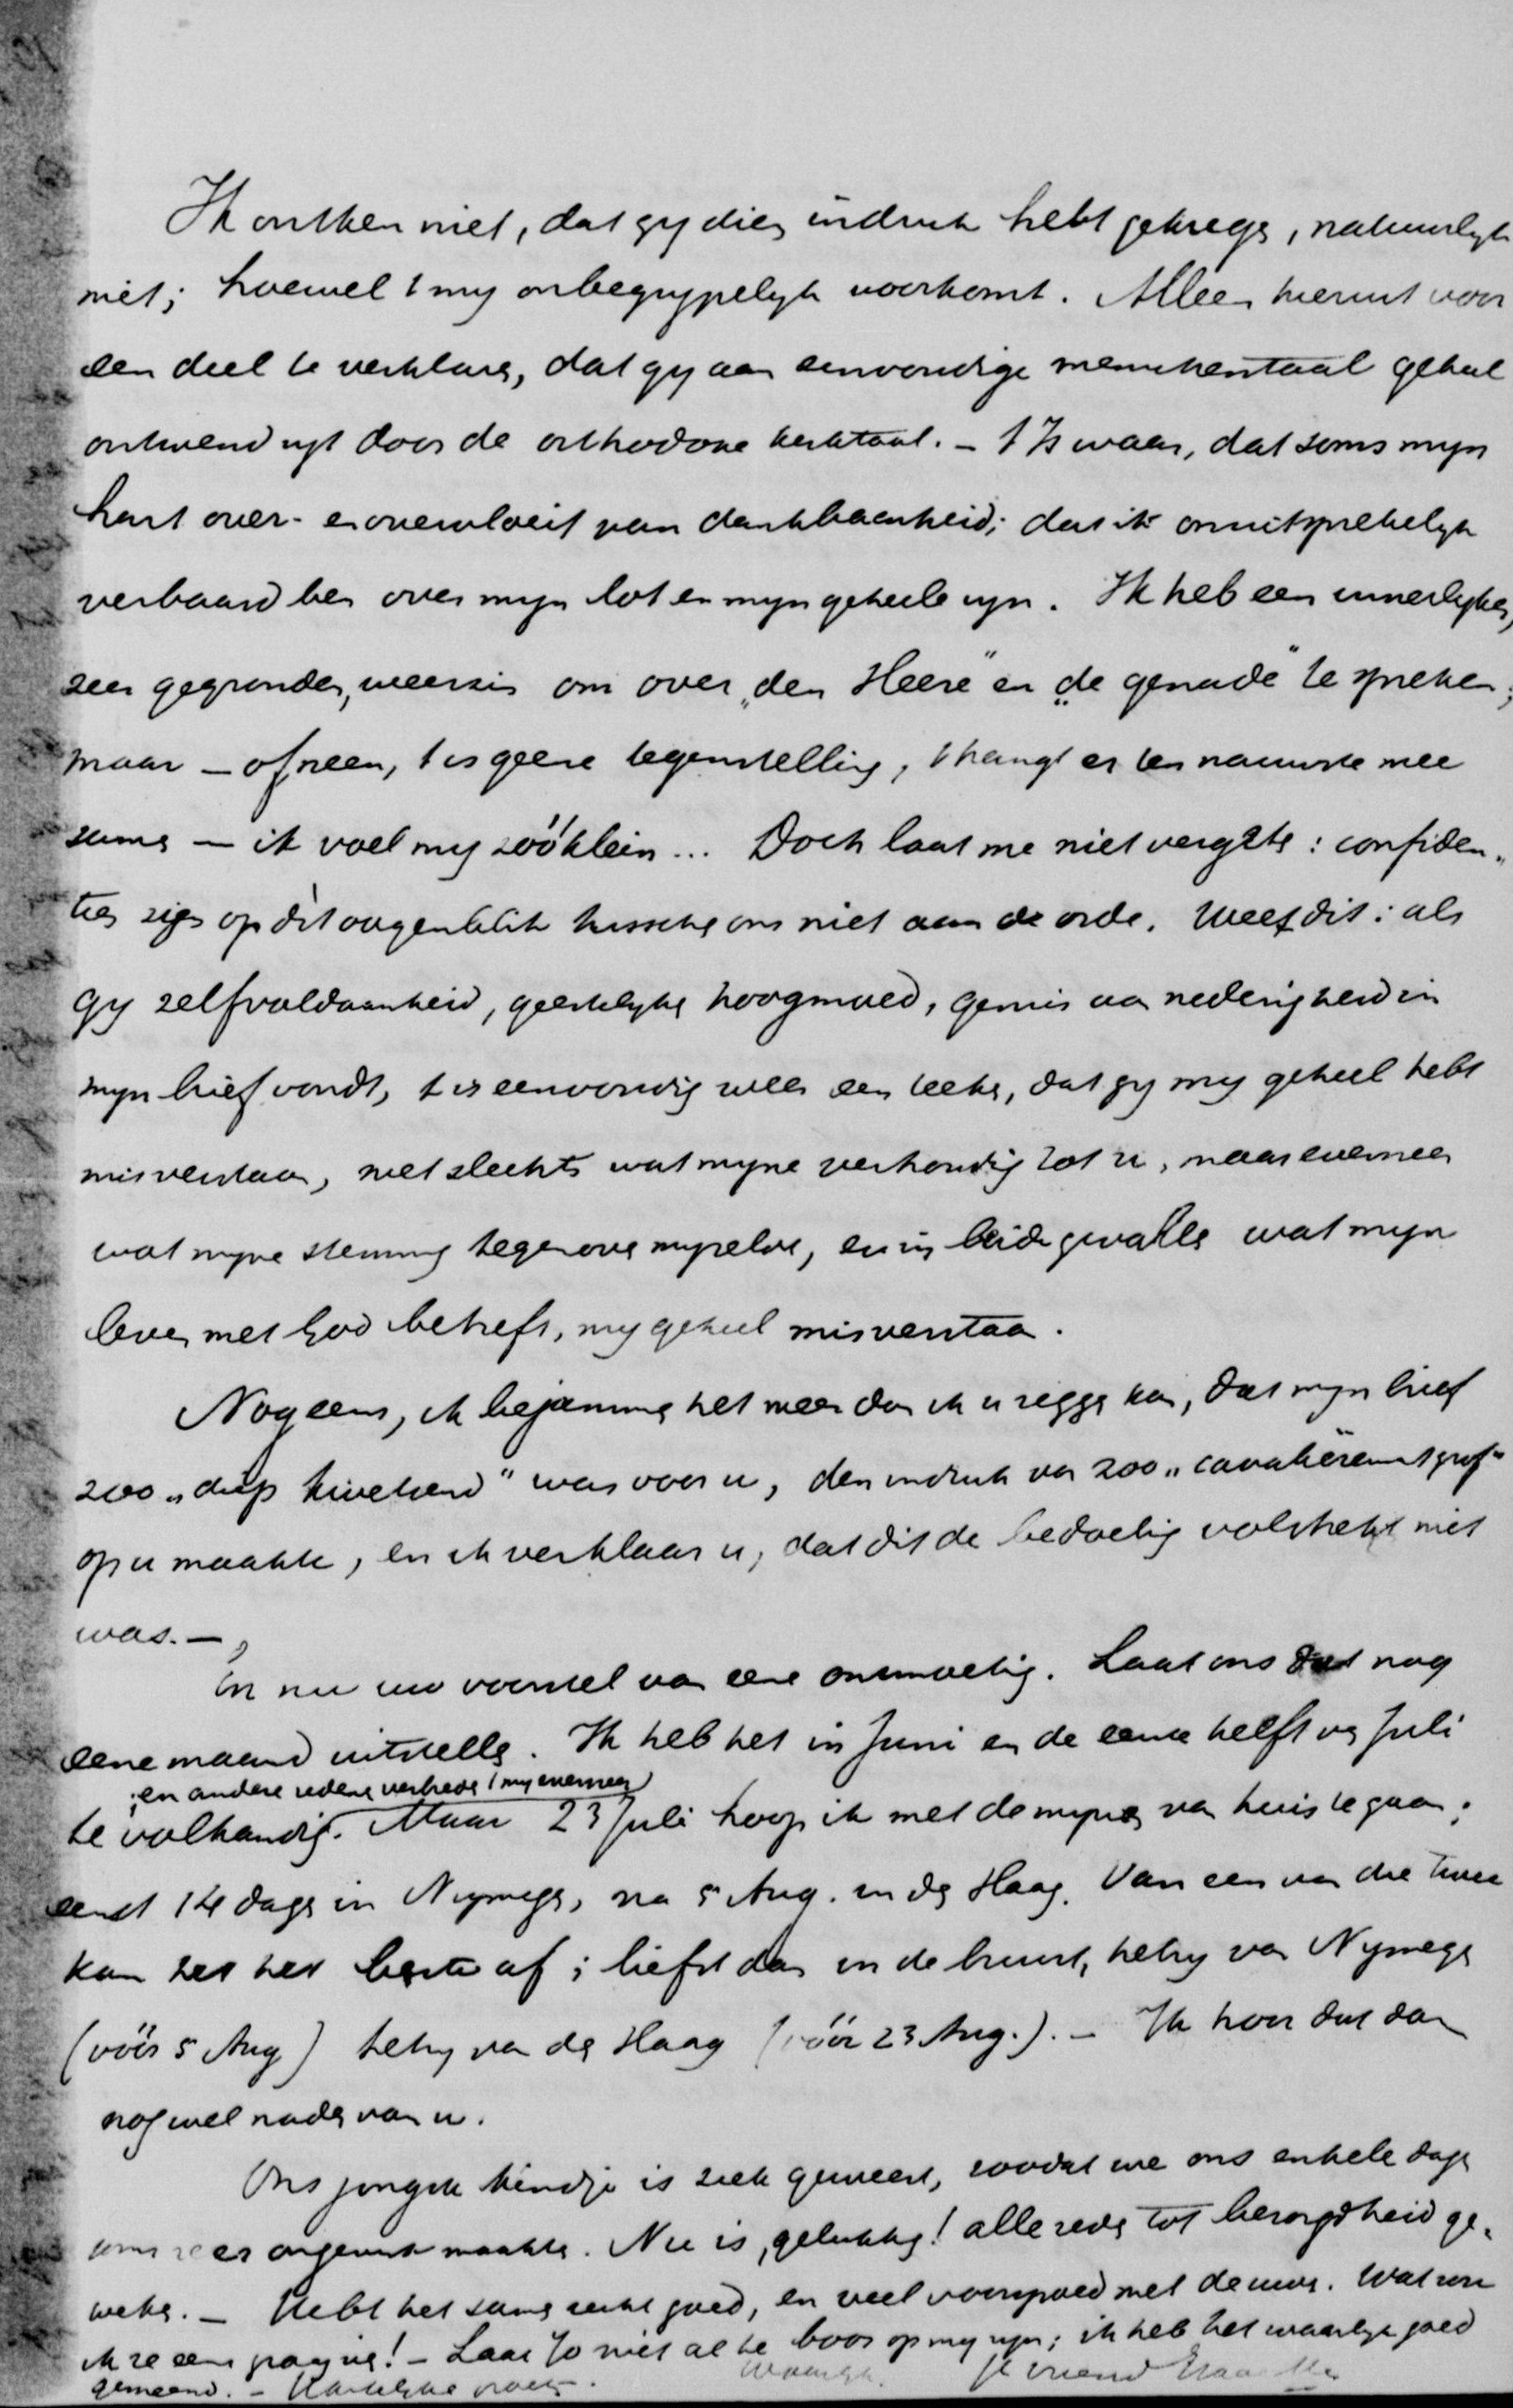 Ik ontken niet, dat gy dien indruk hebt gekregen, natuurlyk
niet; hoewel 't my onbegrypelyk voorkomt. Alleen hieruit voor
een deel te verklaren, dat gy aan eenvoudige menschentaal geheel
ontwend zyt door de orthodoxe kerktaal. – 't Is waar, dat soms myn
hart over- en overvloeit van dankbaarheid; dat ik onuitsprekelyk
verbaasd ben over myn lot en myn geheele zyn. Ik heb een innerlyken,
zeer gegronden, weerzin om over „den Heere" en „de genade" te spreken;
maar – of neen, 't is geene tegenstelling, 't hangt er ten nauwste mee
samen – ik voel my zóó klein... Doch laat me niet vergeten: confiden-
ties zyn op dit oogenblik tusschen ons niet aan de orde. Weet dit: als
gy zelfvoldaanheid, geestelyken hoogmoed, gemis aan nederigheid in
myn brief vondt, 't is eenvoudig weer een teeken, dat gy my geheel hebt
misverstaan, niet slechts wat myne verhouding tot u, maar evenzeer
wat myne stemming tegenover myzelve, en in beide gevallen wat myn
leven met God betreft, my geheel misverstaan.
Nog eens, ik bejammer het meer dan ik u zeggen kan, dat myn brief
zoo „diep krenkend" was voor u, den indruk van zoo „cavalièrement grof"
op u maakte, en ik verklaar u, dat dit de bedoeling volstrekt niet
was. –
En nu uw voorstel van eene ontmoeting. Laat ons dat nog
eene maand uitstellen. Ik heb het in Juni en de eerste helft van Juli
; en andere redenen verbieden 't my evenzeer
te volhandig. Maar 23 Juli hoop ik met de mynen van huis te gaan;
eerst 14 dagen in Nymegen, na 5 Aug. in den Haag. Van een van die twee
kan het het beste af; liefst dan in de buurt, hetzy van Nymegen
(vóór 5 Aug) hetzy van den Haag (vóór 23 Aug.). – Ik hoor dat dan
nog wel nader van u.
Ons jongste kindje is ziek geweest, zoodat we ons enkele dagen
zeer ongerust maakten. Nu is, gelukkig! alle reden tot bezorgdheid ge-
weken. – Hebt het samen recht goed, en veel voorspoed met de uwen. Wat zou
ik ze eens graag zien! – Laat Jo niet al te boos op my zyn; ik heb het waarlyk goed
gemeend. – Hartelyke groeten. waarlyk Je vriend